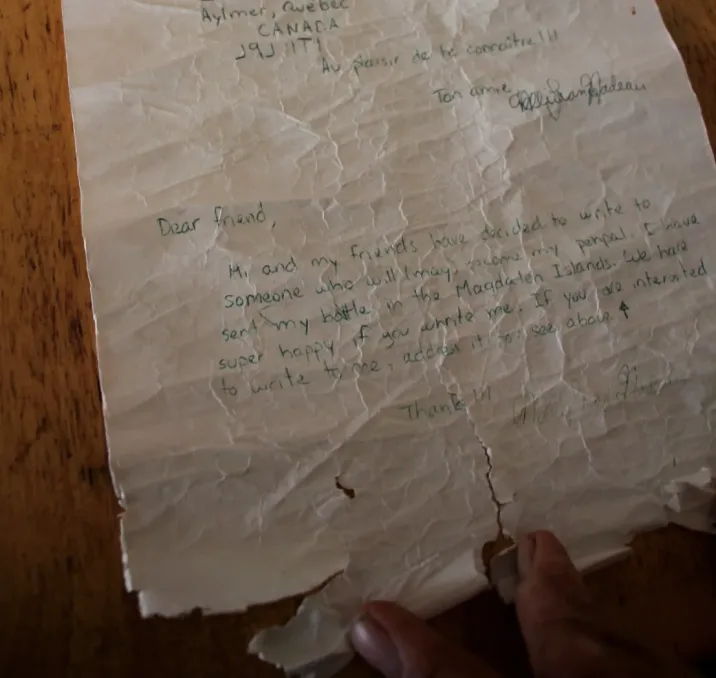 Aylmer, Québec
CANADA
J9J 1T1
Au plaisir de te connaître!!!
Ton amie
Dear friend,
Hi, and my friends have decided to write to
someone who will (may) become my penpal. I have
sent my bottle in the Magdalen Islands. We have
super happy if you whrite me. If you are interested
to write to me, address it to: see above ↑
Thank !!!